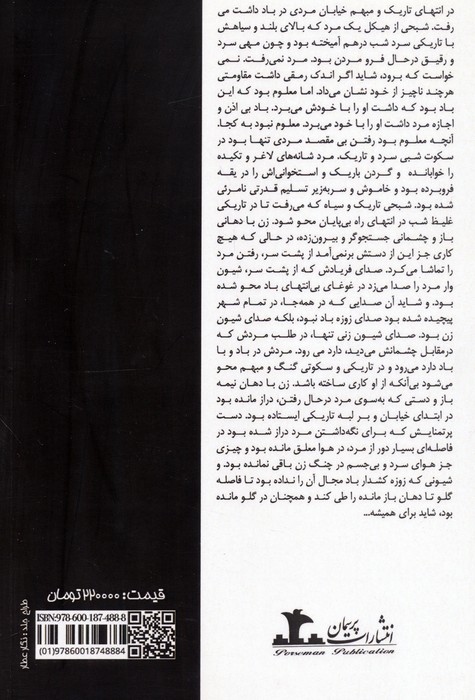 در انتهای تاریک و مبهم خیابان مردی در باد داشت می
رفت. شبحی از هیکل یک مرد که بالای بلند و سیاهش
با تاریکی سرد شب درهم آمیخته بود و چون مهی سرد
و رقیق درحال فرو مردن بود. مرد نمی‌رفت. نمی
خواست که برود، شاید اگر اندک رمقی داشت مقاومتی
هرچند ناچیز از خود نشان می‌داد. اما معلوم بود که این
باد بود که داشت او را با خودش می‌برد. باد بی اذن و
اجازه مرد داشت او را با خود می‌برد. معلوم نبود به کجا.
آنچه معلوم بود رفتن بی مقصد مردی تنها بود در
سکوت شبی سرد و تاریک. مرد شانه‌های لاغر و تکیده
را خوابانده و گردن باریک و استخوانی‌اش را در یقه
فروبرده بود و خاموش و سربه‌زیر تسلیم قدرتی نامرئی
شده بود. شبحی تاریک و سیاه که می‌رفت تا در تاریکی
غلیظ شب در انتهای راه بی‌پایان محو شود. زن با دهانی
باز و چشمانی جستجوگر و بیرون‌زده، در حالی که هیچ
کاری جز این از دستش برنمی‌آمد از پشت سر، رفتن مرد
را تماشا می‌کرد. صدای فریادش که از پشت سر، شیون
وار مرد را صدا می‌زد در غوغای بی‌انتهای باد محو شده
بود. و شاید آن صدایی که در همه‌جا، در تمام شهر
پیچیده شده بود صدای زوزه باد نبود، بلکه صدای شیون
زن بود. صدای شیون زنی تنها، در طلب مردش که
درمقابل چشمانش می‌دید، دارد می رود. مردش در باد و با
باد دارد می‌رود و در تاریکی و سکوتی گنگ و مبهم محو
می‌شود بی‌آنکه از او کاری ساخته باشد. زن با دهان نیمه
باز و دستی که به‌سوی مرد درحال رفتن، دراز مانده بود
در ابتدای خیابان و بر لبه تاریکی ایستاده بود. دست
پرتمنایش که برای نگه‌داشتن مرد دراز شده بود در
فاصله‌ای بسیار دور از مرد، در هوا معلق مانده بود و چیزی
جز هوای سرد و بی‌جسم در چنگ زن باقی نمانده بود. و
شیونی که زوزه کشدار باد مجال آن را نداده بود تا فاصله
گلو تا دهان باز مانده را طی کند و همچنان در گلو مانده
بود، شاید برای همیشه...
قیمت: ۲۲۰۰۰۰ تومان
ISBN:978-600-187-488-8
(01)9786001874884
طراح جلد: نگار عطار
انتشارات پرسمان
Porseman Publication